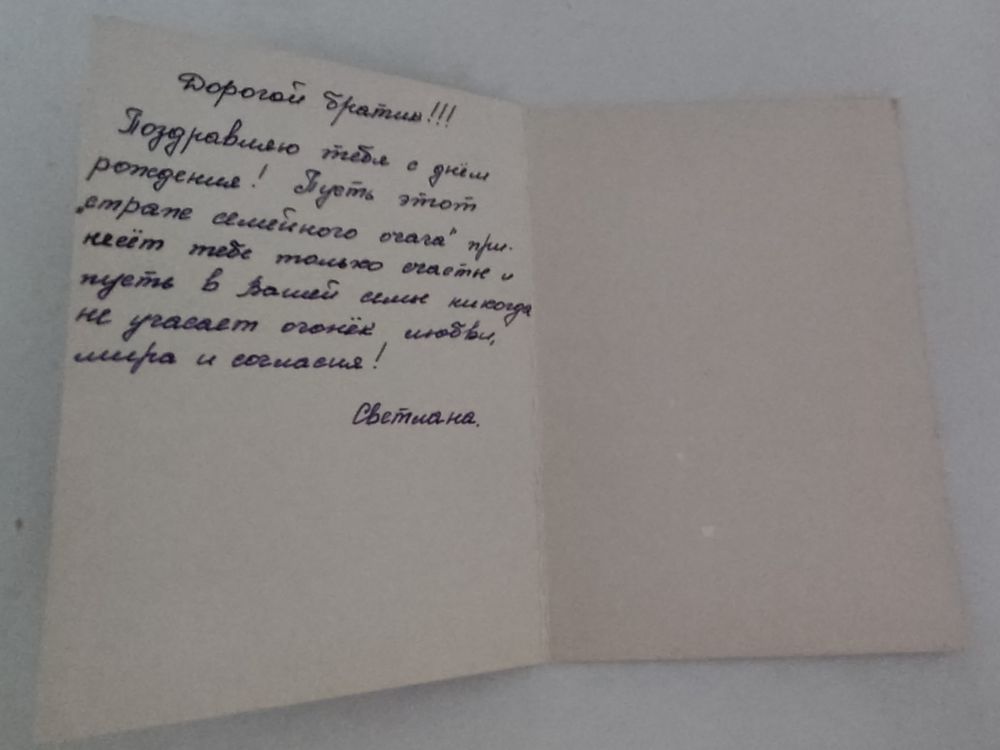 Дорогой братик!!!
Поздравляю тебя с днём
рождения! Пусть этот
„страж семейного очага" при-
несёт тебе только счастье и
пусть в Вашей семье никогда
не угасает огонёк любви,
мира и согласия!
Светлана.